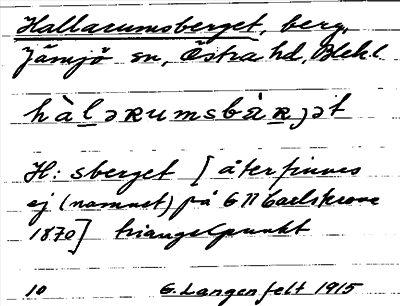 Hallarumsberget, berg,
Jämjö sn, Östra hd, Blek. l.
hàlǝʀumsbæ̀ʀjǝt
H: sberget [återfinnes
ej (namnet) på G Carlskrona
1870] triangelpunkt
10 G. Langenfelt 1915